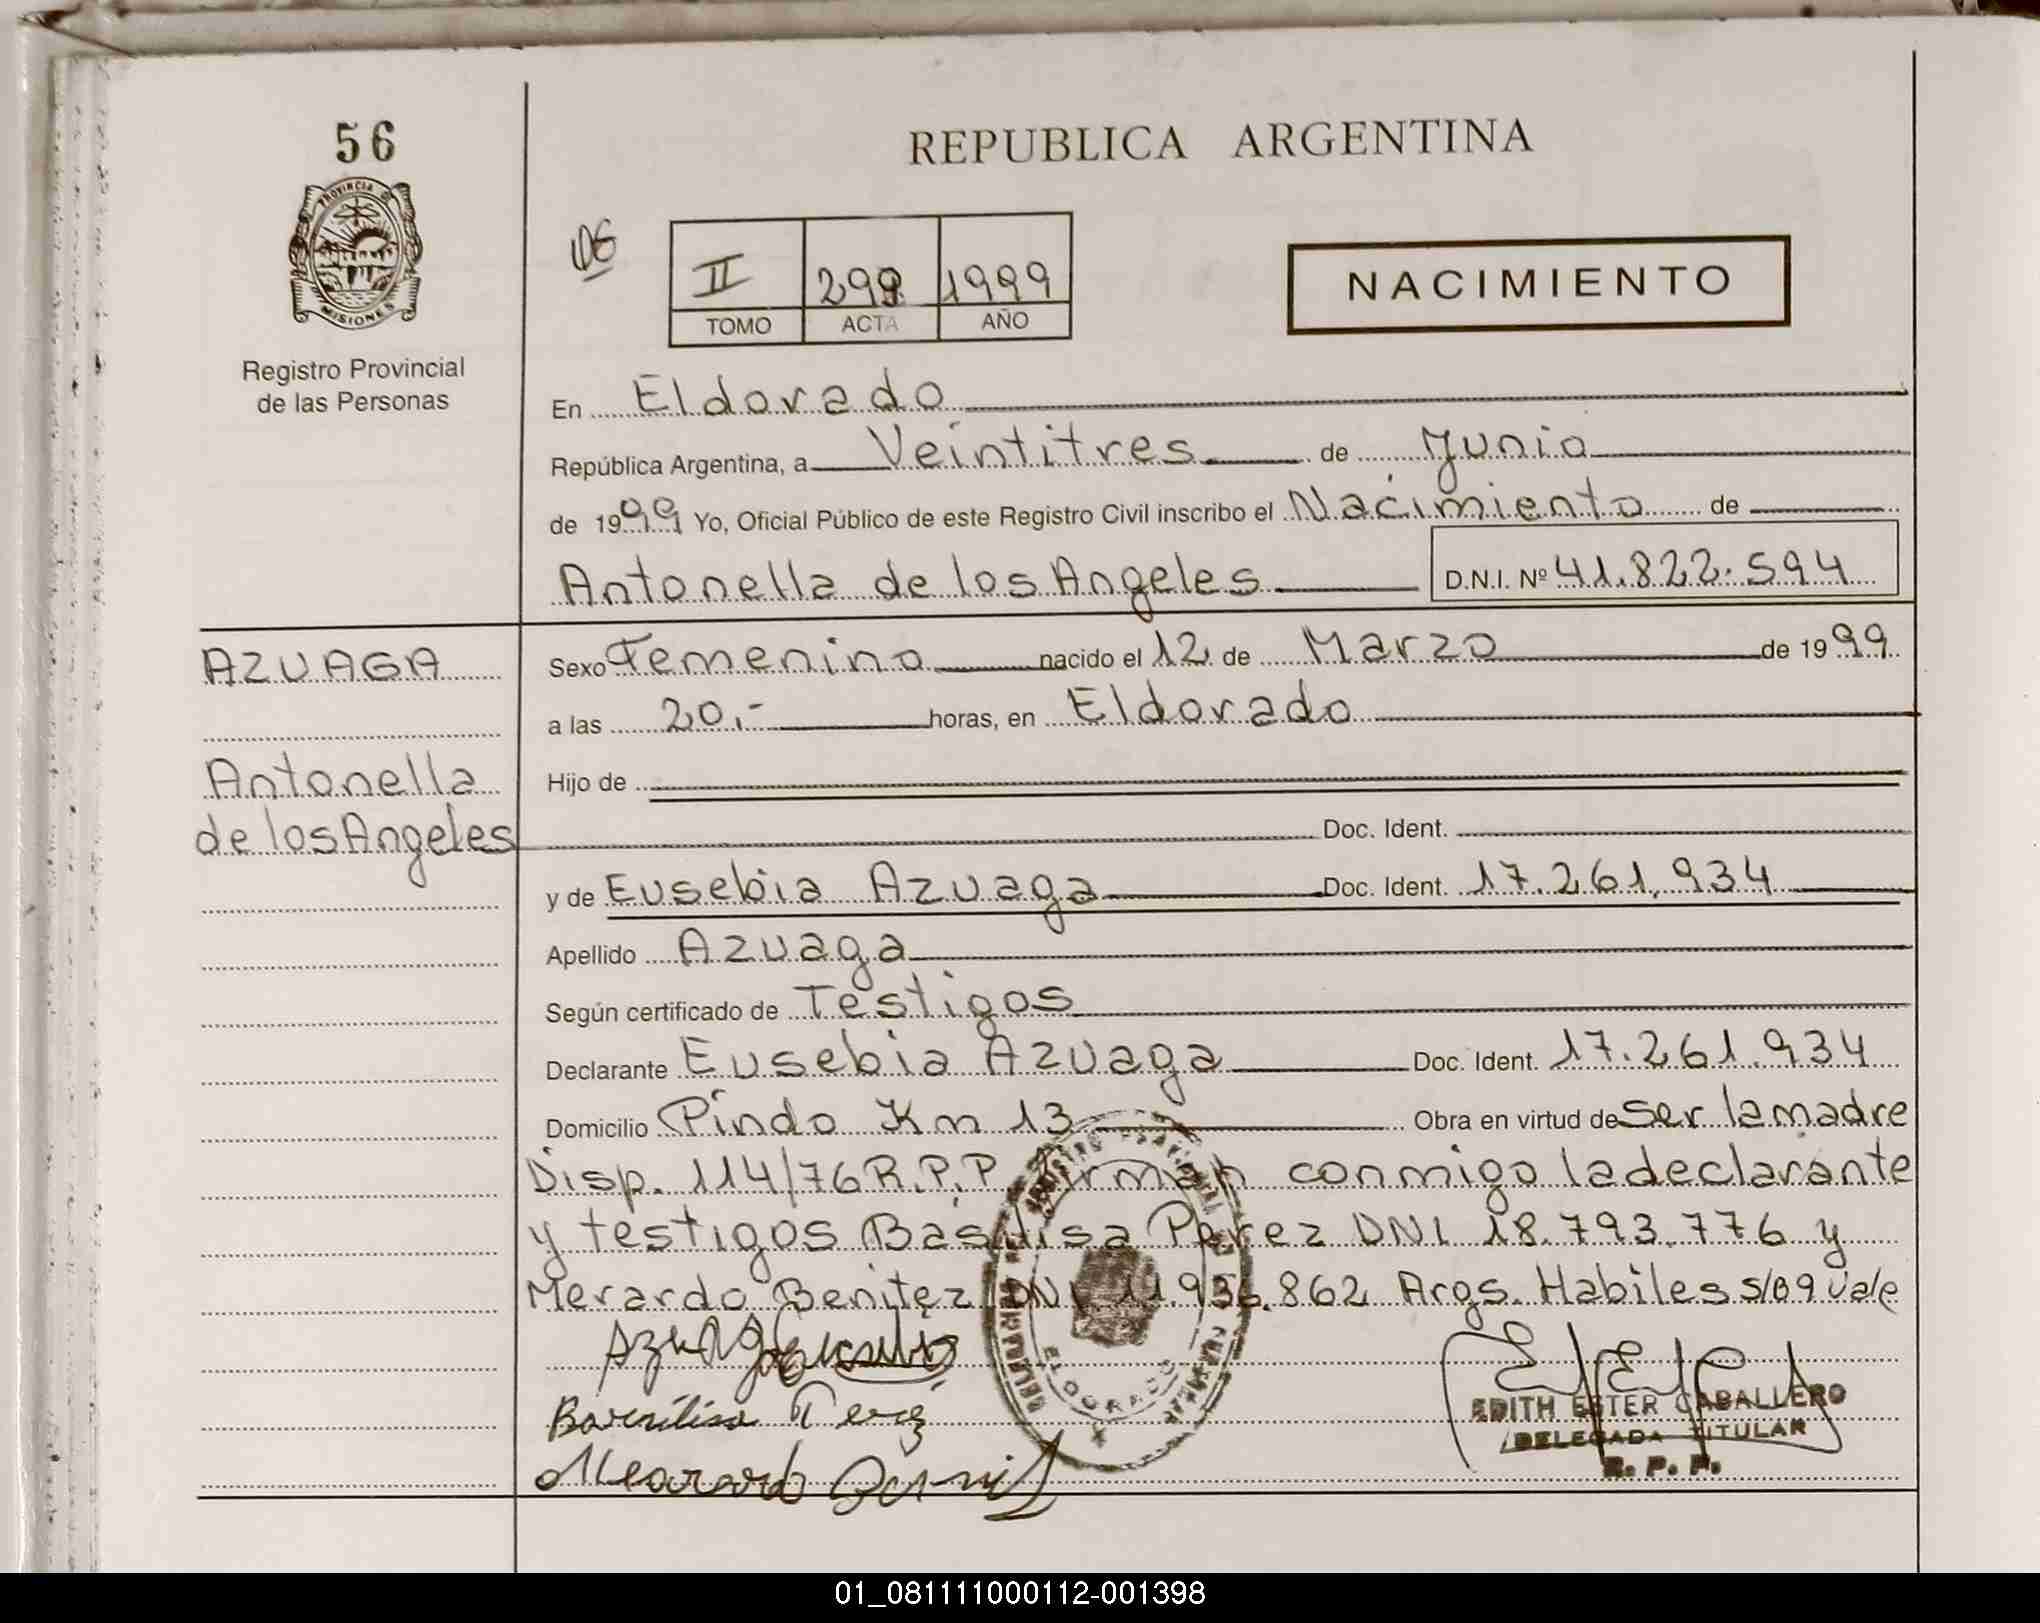 56
PROVINCIA DE
MISIONES
Registro Provincial
de las Personas
REPUBLICA ARGENTINA
II 299 1999
TOMO ACTA AÑO
NACIMIENTO
En Eldorado
República Argentina, a Veintitres de Junio
de 1999 Yo, Oficial Público de este Registro Civil inscribo el Nacimiento de
Antonella de los Angeles D.N.I. Nº 41.822.594
AZUAGA
Antonella
de los Angeles
Sexo Femenino nacido el 12 de Marzo de 1999
a las 20.- horas, en Eldorado
Hijo de
Doc. Ident.
y de Eusebia Azuaga Doc. Ident. 17.261.934
Apellido Azuaga
Según certificado de Testigos
Declarante Eusebia Azuaga Doc. Ident. 17.261.934
Domicilio Pindo Km 13 Obra en virtud de ser la madre
Disp. 114/76 R.P.P. Firman conmigo la declarante
y testigos Basilisa Perez DNI 18.793.776 y
Merardo Benitez DNI 11.936.862 Args. Habiles s/b 9 vale
ELDORADO
EDITH ESTER CABALLERO
DELEGADA TITULAR
R. P. P.
01_081111000112-001398